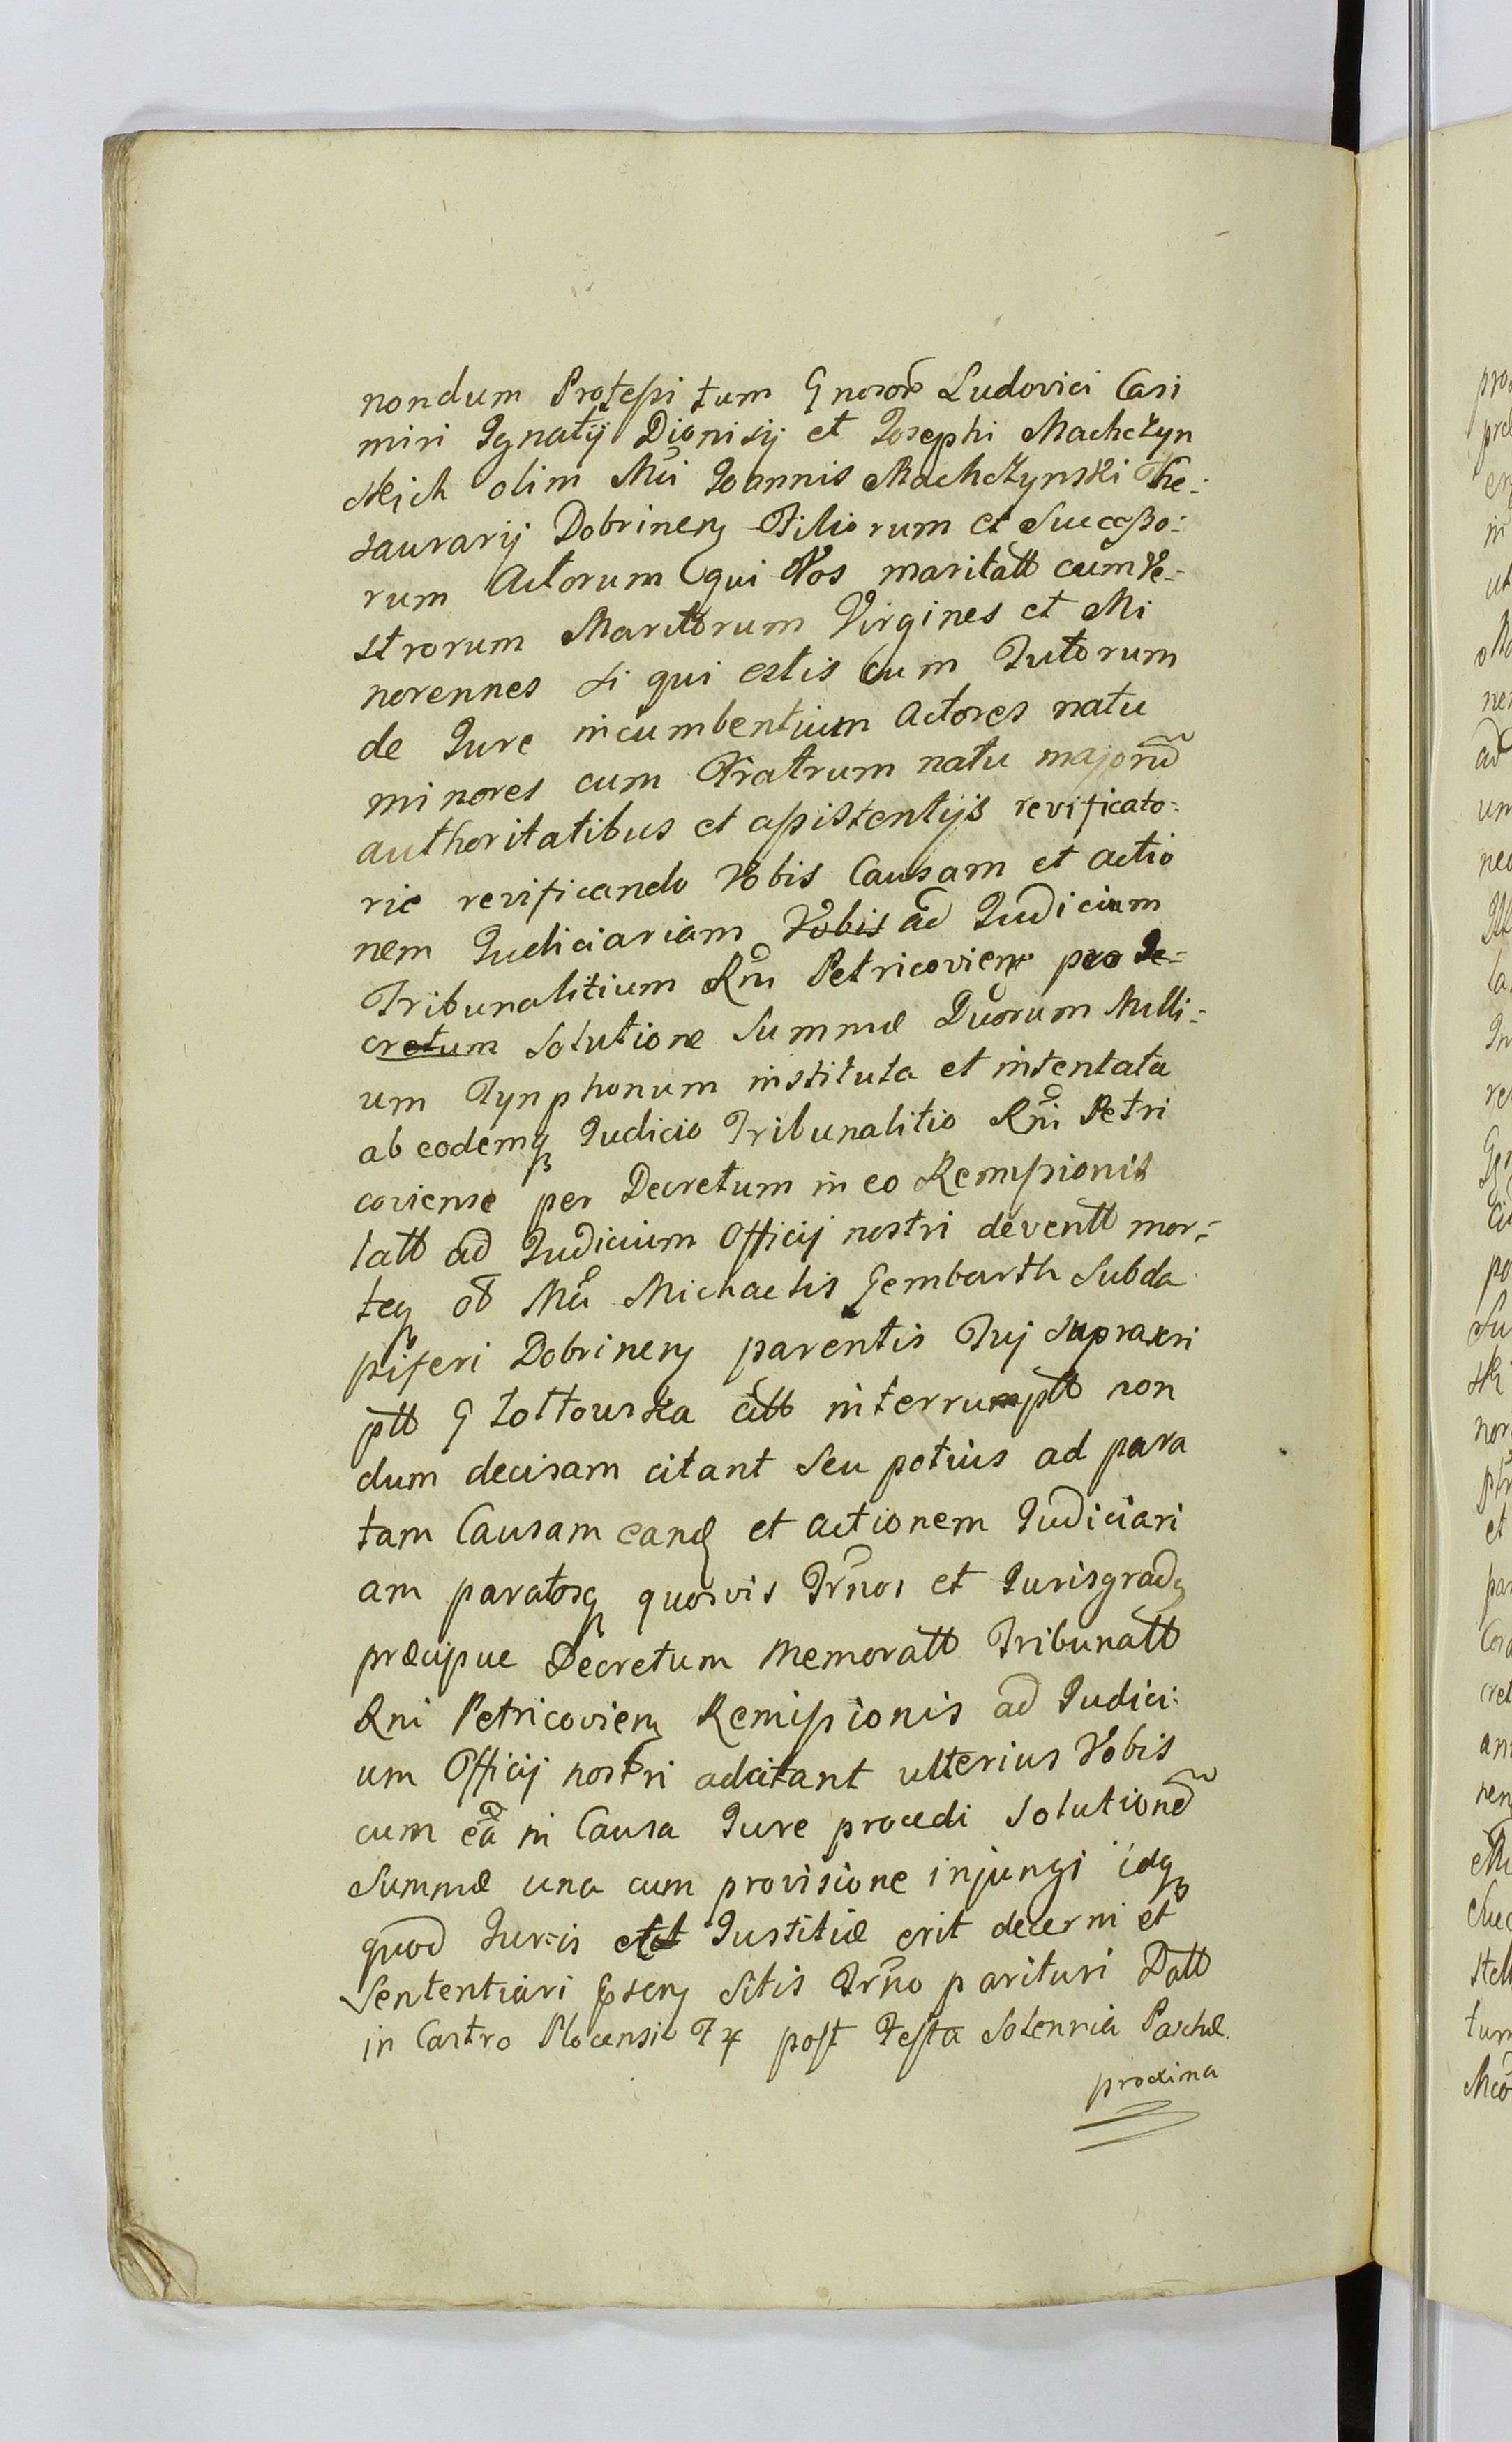 nondum Professi tum Gnosor Ludovici Casi
miri Ignatij Dionisij et Josephi Machczyn
skich olim Mci Joannis Machczynski The=
saurarij Dobrinens Filiorum et Successo=
rum Actorum qui Vos maritatt cum Ve=
strorum Maritorum Virgines et Mi
norennes si qui estis cum Tutorum
de Jure incumbentium Actores natu
minores cum Fratrum natu majorũ
authoritatibus et assistentijs revificato=
rie revificando Vobis Causam et actio
nem Judiciariam Vobis ad Judicium
Tribunalitium Rni Petricoviens pro De=
cretum Solutione Summæ Duorum Milli=
um Tynphonum instituta et intentata
ab eodemq Judicio Tribunalitio Rni Petri
coviense per Decretum in eo Remissionis
latt ad Judicium Officij nostri deventt mor=
teq od Mci Michaelis Gembarth Subda
piferi Dobrinens parentis Tuj suprascri
ptt G Zottowska citt interrumptt non
dum decisam citant seu potius ad para
tam Causam eand et actionem Judiciari
am paratosq quosvis Trnos et Jurisgradq
præcipue Decretum Memoratt Tribunatt
Rni Petricoviens Remissionis ad Judici:
um Officij nostri adcitant ulterius Vobis
cum eã in Causa Jure procedi Solutionẽ
Summæ una cum provisione injungi idq
quod Juris et Justitiæ erit decerni et
Sententiari sitis Trno parituri Datt
in Castro Plocensi F 4 post Festa Solennia Paschæ
proxima